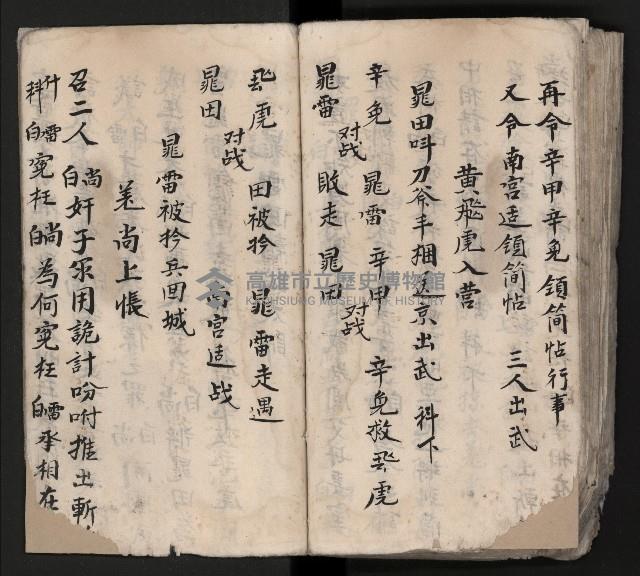 再令辛甲辛免領简帖行事
又令南宫适領简帖 三人出武
黄飛虎入营
晁田呌刀爷手捆送京出武 科下
辛免 对战 晁雷 辛甲 对战 辛免救飛虎
晁雷 敗走 晁田
飛虎 对战 田被擒 晁雷走遇
晁田 南宫适战
晁雷被擒兵囬城
姜尚上悵
召二人 尚白奸子尔用詭計吩咐推出斬
什料 雷白寃枉 尚白為何寃枉 雷白承相在
高雄市立歷史博物館
KAOHSIUNG MUSEUM OF HISTORY